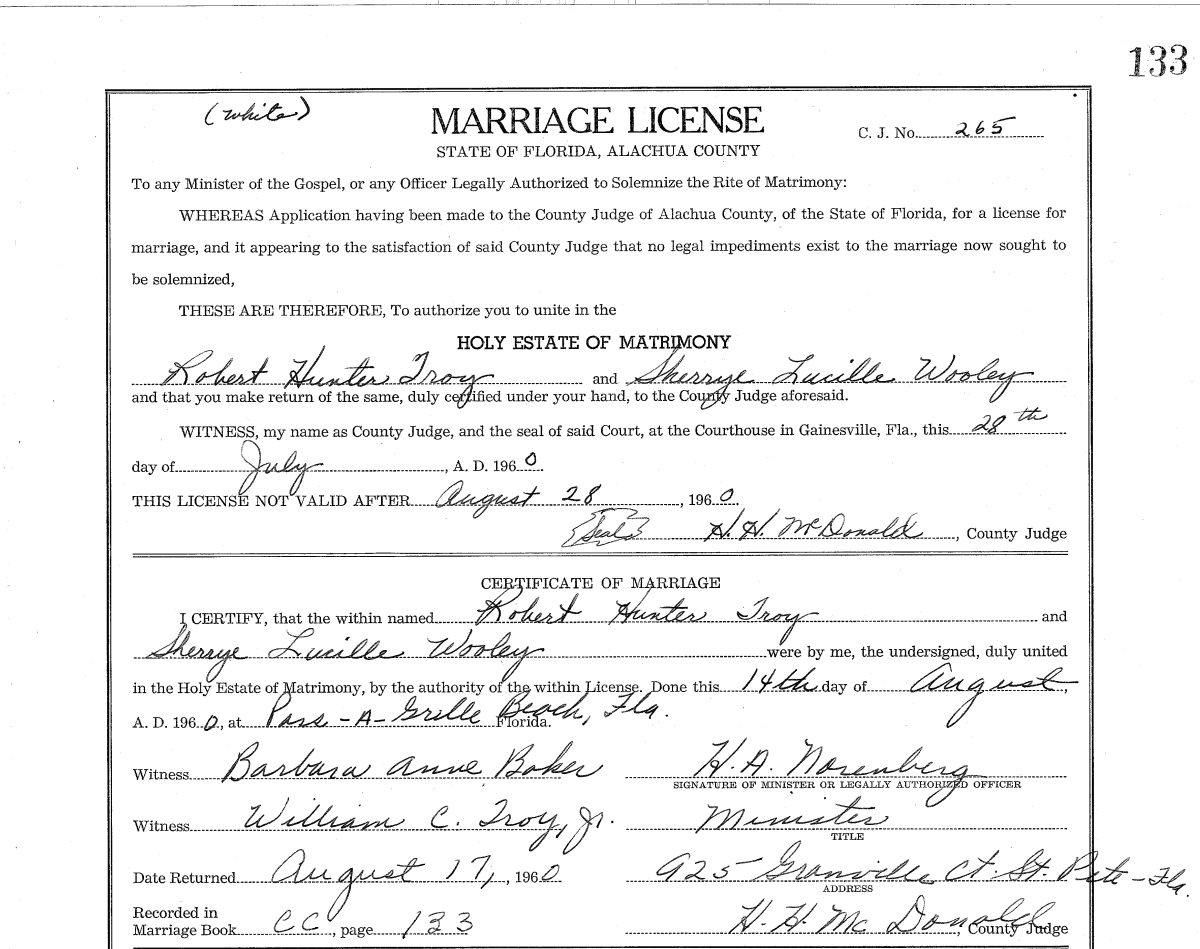 133
(white)
MARRIAGE LICENSE
C. J. No. 265
STATE OF FLORIDA, ALACHUA COUNTY
To any Minister of the Gospel, or any Officer Legally Authorized to Solemnize the Rite of Matrimony:
WHEREAS Application having been made to the County Judge of Alachua County, of the State of Florida, for a license for
marriage, and it appearing to the satisfaction of said County Judge that no legal impediments exist to the marriage now sought to
be solemnized,
THESE ARE THEREFORE, To authorize you to unite in the
HOLY ESTATE OF MATRIMONY
Robert Hunter Troy and Sherrye Lucille Wooley
and that you make return of the same, duly certified under your hand, to the County Judge aforesaid.
WITNESS, my name as County Judge, and the seal of said Court, at the Courthouse in Gainesville, Fla., this 28th
day of July, A. D. 1960.
THIS LICENSE NOT VALID AFTER August 28, 1960
Seal H. H. McDonald, County Judge
CERTIFICATE OF MARRIAGE
I CERTIFY, that the within named Robert Hunter Troy and
Sherrye Lucille Wooley were by me, the undersigned, duly united
in the Holy Estate of Matrimony, by the authority of the within License. Done this 14th day of August,
A. D. 1960, at Pass-A-Grille Beach, Fla. Florida.
Witness Barbara Anne Baker H. A. Norenberg
SIGNATURE OF MINISTER OR LEGALLY AUTHORIZED OFFICER
Witness William C. Troy, Jr. Minister
TITLE
Date Returned August 17, 1960 925 Granville Ct. St. Pete - Fla.
ADDRESS
Recorded in
Marriage Book CC, page 133 H. H. McDonald, County Judge